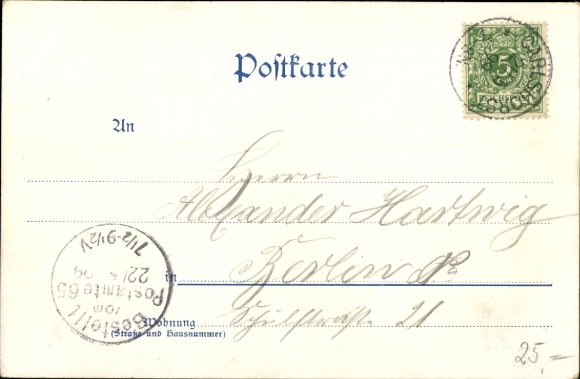 Postkarte
CARLSHORST
5
REICHSPOST
An
Herrn
Alexander Hartwig
in Berlin
Wohnung
(Straße und Hausnummer)
21
Bestellt
vom
Postamte 65
22/
7½-9½V
25,=